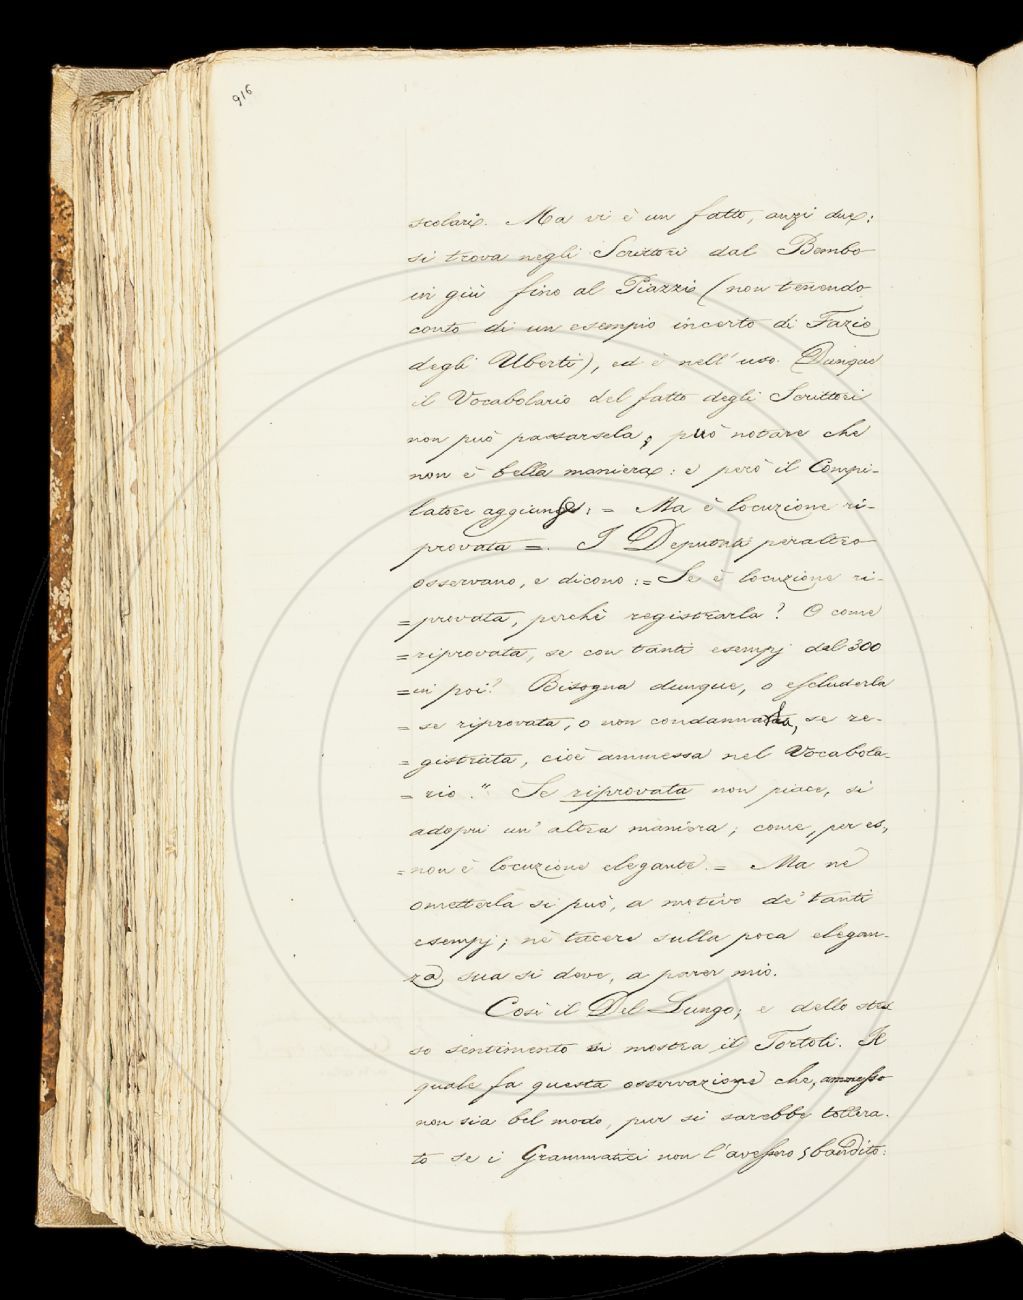 916
scolari. Ma vi è un fatto, anzi due:
si trova negli Scrittori dal Bembo
in giù fino al Piazzi (non tenendo
conto di un esempio incerto di Fazio
degli Uberti), ed è nell'uso. Dunque
il Vocabolario del fatto degli Scrittori
non può passarsela; può notare che
non è bella maniera: e però il Compi-
latore aggiunge: = Ma è locuzione ri-
provata =. I Deputati peraltro
osservano, e dicono: = Se è locuzione ri-
= provata, perchè registrarla? O come
= riprovata, se con tanti esempj dal 300
= in poi? Bisogna dunque, o escluderla
= se riprovata, o non condannarla, se re-
= gistrata, cioè ammessa nel Vocabola-
= rio." Se riprovata non piace, si
adopri un'altra maniera; come, per es,
= non è locuzione elegante. = Ma nè
ometterla si può, a motivo de' tanti
esempj; nè tacere sulla poca elegan-
za sua si deve, a parer mio.
Così il Del Lungo; e dello stes
so sentimento si mostra il Tortoli. Il
quale fa questa osservazione che, ammesso
non sia bel modo, pur si sarebbe tollera-
to se i Grammatici non l'avessero sbandito: